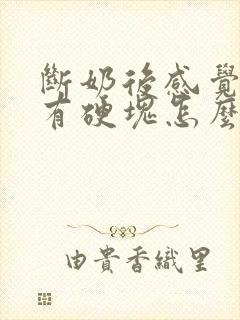 斷奶後感覺
有硬塊怎麼
由貴香織里